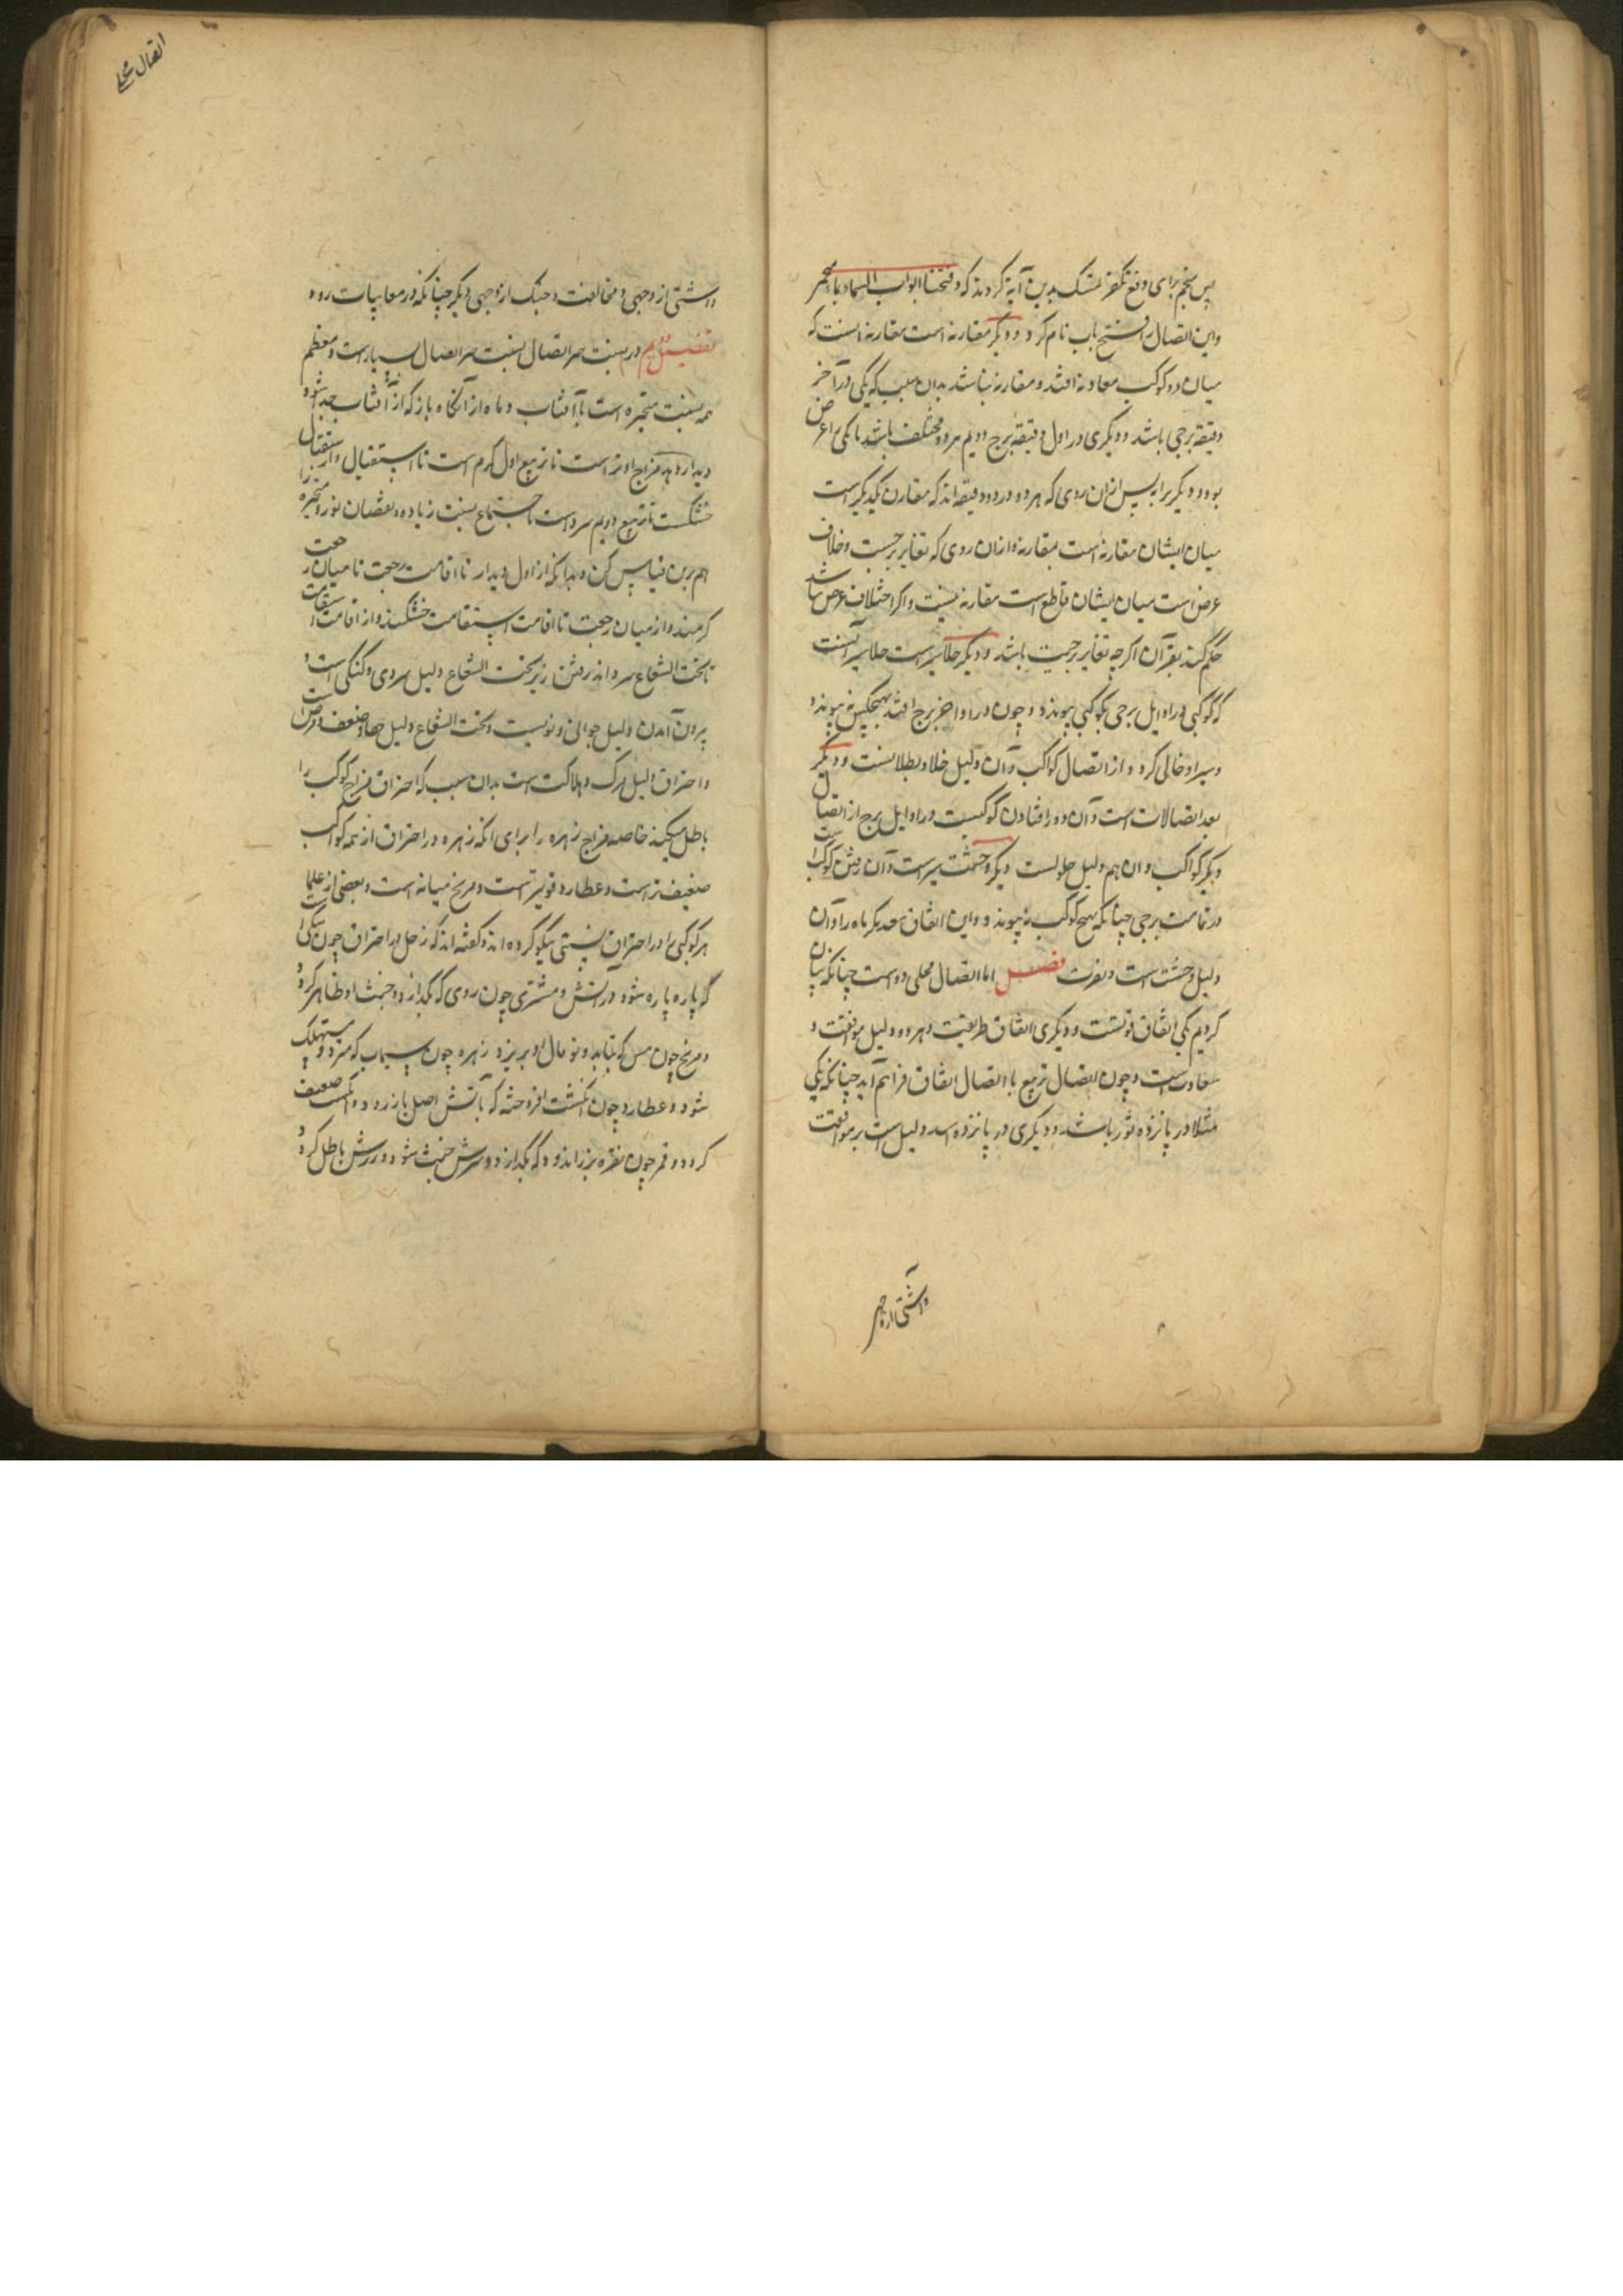 پس منجم برای دفع تکفیر تمسک بدین آیة کردند که و فتحنا ابواب السماء بماء منهمر
و این اتصال را فتح باب نام کرد و دیگر مقارنه است مقارنه آنست که
میان دو کوکب معاونه افتد و مقارنه نباشد بدان سبب که یکی در آخر
دقیقه برجی باشد و دیگری در اول دقیقه برج دویم هر دو مختلف باشد یا یکی را عرض
بود و دیگر برابر پس از ان روی که هر دو در دو دقیقه اند که مقارن یکدیگر است
میان ایشان مقارنه است بمقارنه و ازان روی که تغایر برجیست و خلاف
عرض است میان ایشان قاطع است مقارنه نیست و اگر اختلاف عرض نباشد
حکم کنند بقران اگرچه تغایر برجیت باشد و دیگر خلاء سیر است خلاء سیر آنست
که کوکبی در اوایل برجی بکوکبی پیوندد و چون در اواخر برج افتد بهیچکس نه پیوندد
و سیر او خالی گردد از اتصال کواکب و آن دلیل خلا و بطلانست و دیگر
بعد اتصالات است و آن دور افتادن کوکبیست در اوایل برج از اتصال
دیگر کواکب و ان هم دلیل خلوست دیگر وحشت سیر است و آن رفتن کوکب است
در تمامت برجی چنانکه بهیچ کوکب نه پیوندد و این اتفاق نیفتد مگر ماه را و آن
دلیل وحشت است و نفرت فصل اما اتصال محلی دو است چنانکه بیان
کردیم یکی اتفاق قوتست و دیگری اتفاق طریقت و هر دو دلیل موافقت و
سعادت است و چون اتصال تربیع با اتصال اتفاق فراهم آید چنانکه یکی
مثلا در پانزده ثور باشد و دیگری در پانزده اسد دلیل است بر موافقت
و آشتی از وجهی
اتصال محلی
و آشتی از وجهی و مخالفت و جنگ از وجهی دیگر چنانکه در معایبات رود
تفصیل دویم در نسبت سر اتصال نسبت سر اتصال بسیار است و معظم
همه نسبت متحیره است با آفتاب و ماه از آنگاه باز که از آفتاب جدا شود
دیدار دهد مزاج او تر است تا تربیع اول گرم است تا استقبال و از استقبال
خشکست تا تربیع دویم سرد است تا اجتماع نسبت زیاده و نقصان نور و متحیره را
هم برین قیاس کن و بدانکه از اول دیدار تا اقامت رجعت تا میان رجعت
گرمند و از میان رجعت تا اقامت استقامت خشکند و از اقامت استقامت
تا تحت الشعاع سرد اند رفتن زیر تحت الشعاع دلیل سردی و کندگی است و
بیرون آمدن دلیل جوانی و نویست و تحت الشعاع دلیل ضعف و مرض است
و احتراق دلیل مرگ و هلاکت است بدان سبب که احتراق مزاج کوکب را
باطل میکند خاصه مزاج زهره را برای انکه زهره در احتراق از همه کواکب
ضعیف تر است و عطارد قویتر است و مریخ میانه است و بعضی از علما
هر کوکبی را در احتراق نسبتی نیکو کرده اند و گفته اند که زحل در احتراق چون سنگی است
که پاره پاره شود در آتش و مشتری چون روی که بگدازد و خبث او ظاهر گردد
و مریخ چون مس که بتابد و توبال او بریزد زهره چون سیماب که میرد و مستهلک
شود و عطارد چون انگشت افروخته که بآتش اصل باز رود و انگشت ضعیف
گردد و قمر چون نقره که بگدازد و سرش خبث شود و زرش باطل گردد